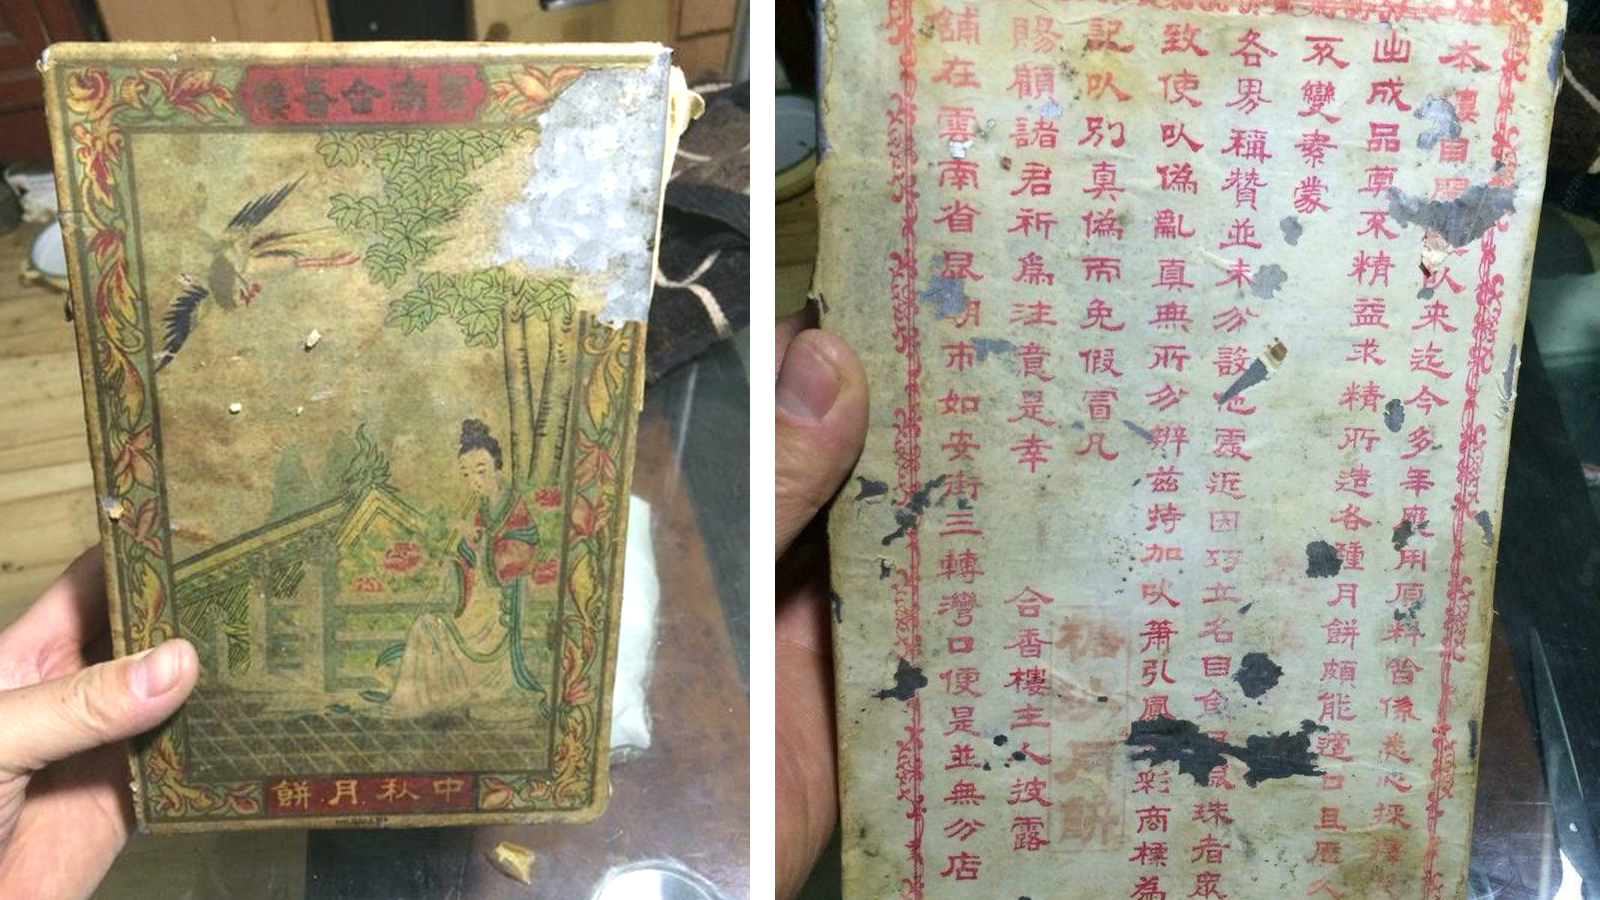 雲南合香樓
中秋月餅
本樓自開
以來迄今多年應用原料皆係悉心採
出成品尊來精益求精所造各種月餅頗能適口且歷久
不變素蒙
各界稱贊並未分設他處近因巧立名目魚目混珠者眾
致使以偽亂真無所分辨茲特加以簫引鳳彩商標為
記以別真偽而免假冒凡
賜顧諸君祈為注意是幸
合香樓主人披露
舖在雲南省昆明市如安街三轉灣口便是並無分店
月餅